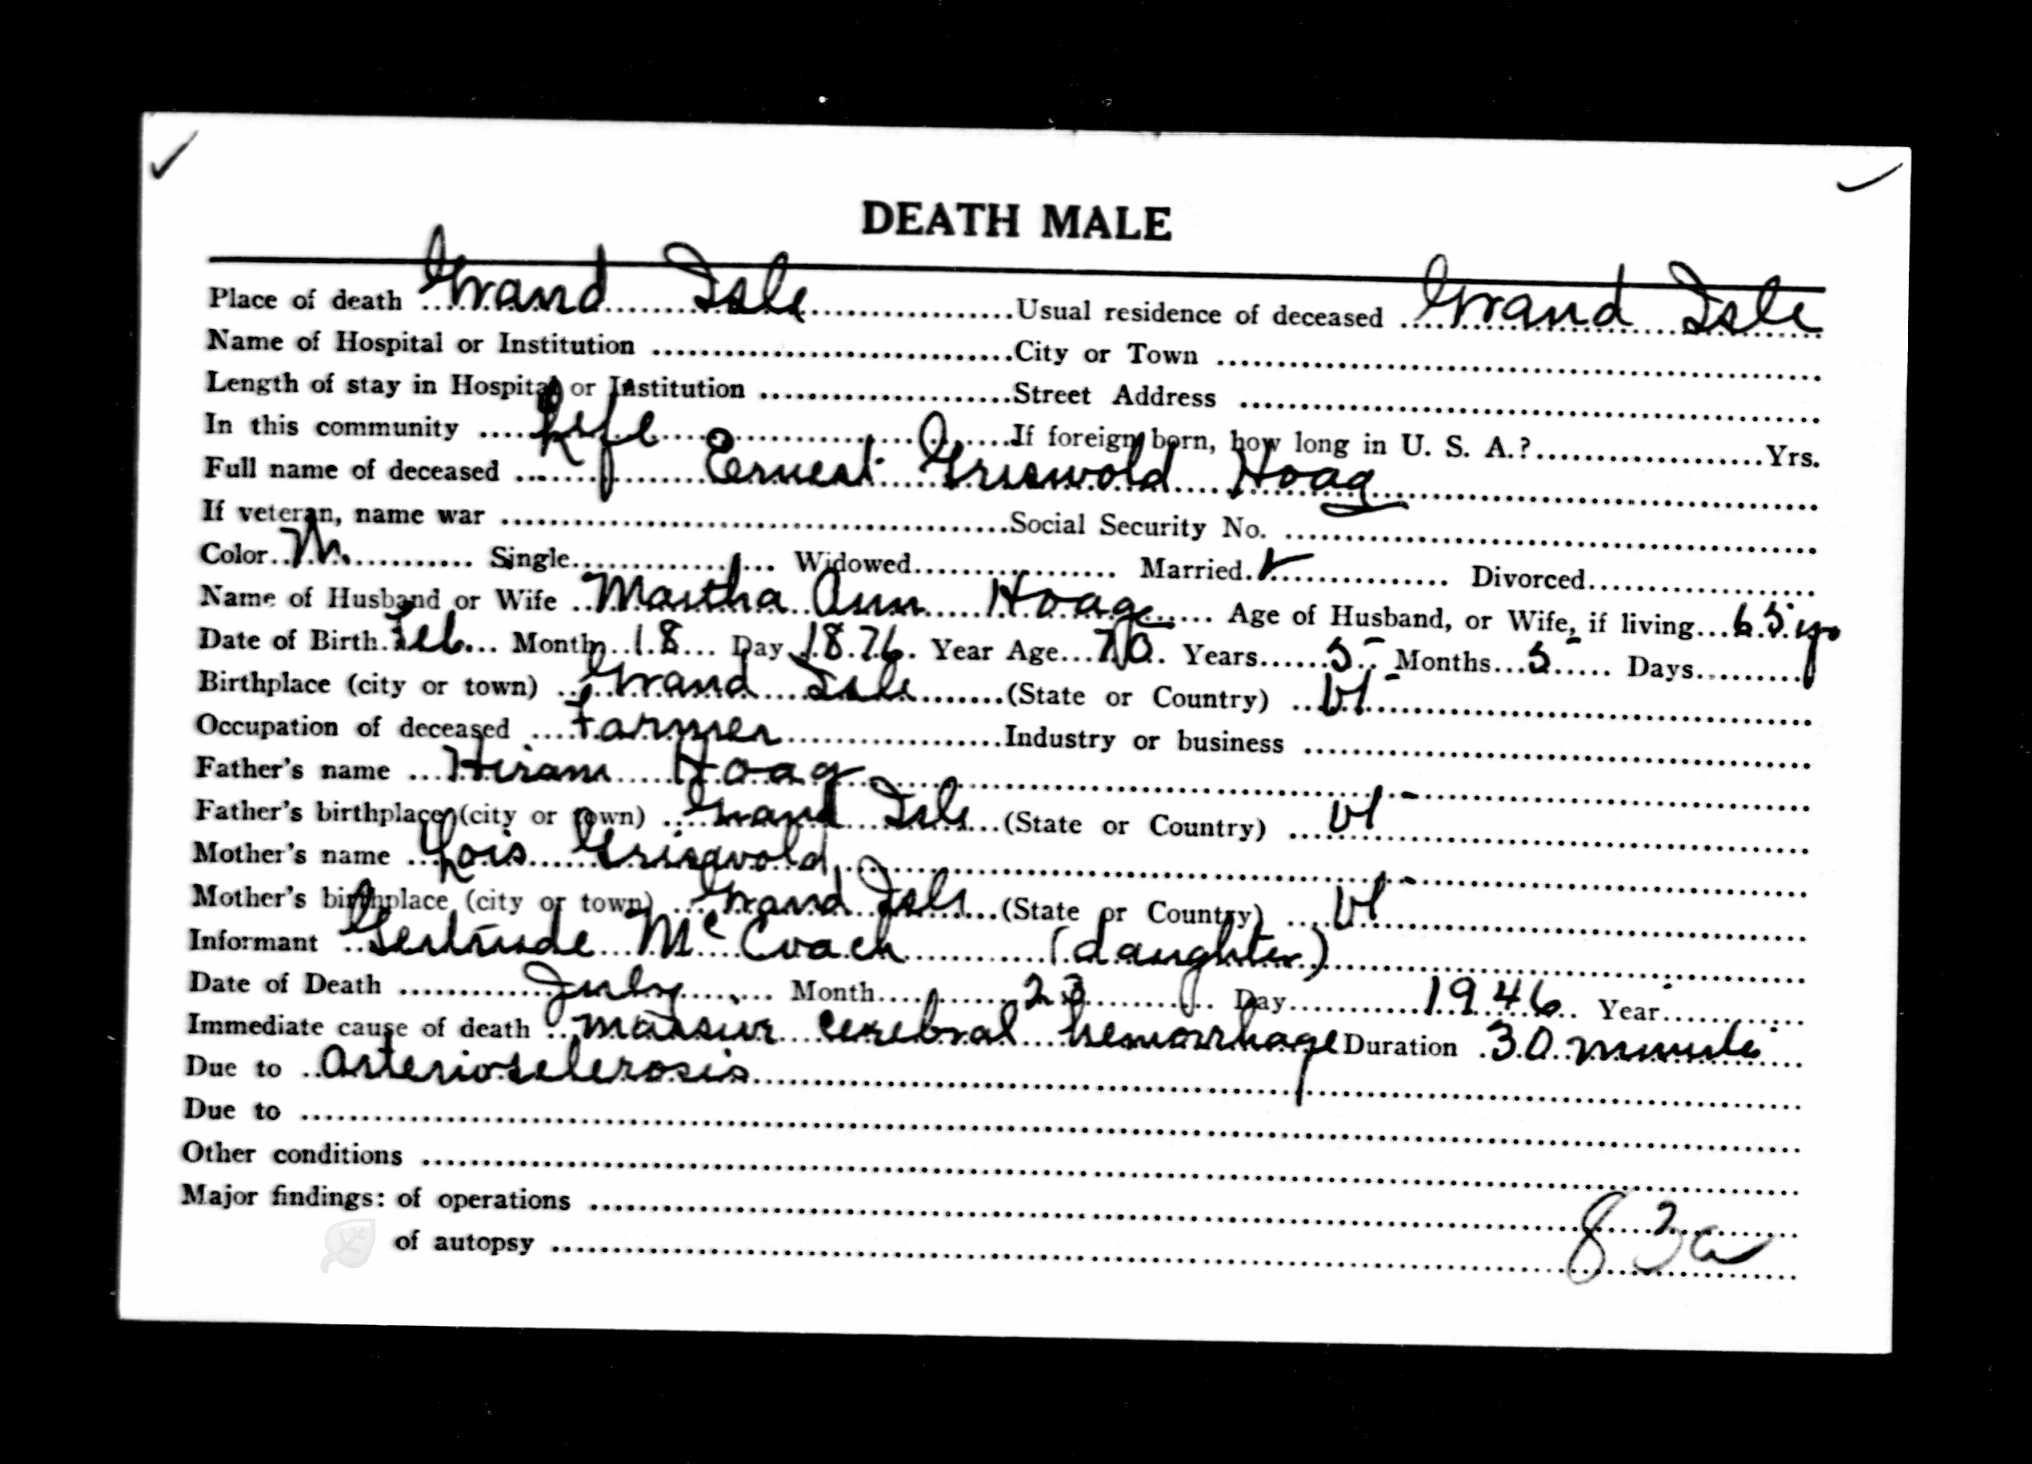 DEATH MALE
Place of death Grand Isle Usual residence of deceased Grand Isle
Name of Hospital or Institution City or Town
Length of stay in Hospital or Institution Street Address
In this community Life If foreign born, how long in U. S. A.? Yrs.
Full name of deceased Ernest Griswold Hoag
If veteran, name war Social Security No.
Color Single Widowed Married ✓ Divorced
Name of Husband or Wife Martha Ann Hoag Age of Husband, or Wife, if living 65 yr
Date of Birth Feb Month 18 Day 1876 Year Age 70 Years 5 Months 5 Days
Birthplace (city or town) Grand Isle (State or Country) Vt
Occupation of deceased Farmer Industry or business
Father's name Hiram Hoag
Father's birthplace (city or town) Grand Isle (State or Country) Vt
Mother's name Lois Griswold
Mother's birthplace (city or town) Grand Isle (State or Country) Vt
Informant Gertrude McCoach (daughter)
Date of Death July Month 23 Day 1946 Year
Immediate cause of death massive cerebral hemorrhage Duration 30 minute
Due to arteriosclerosis
Due to
Other conditions
Major findings: of operations
of autopsy
83a